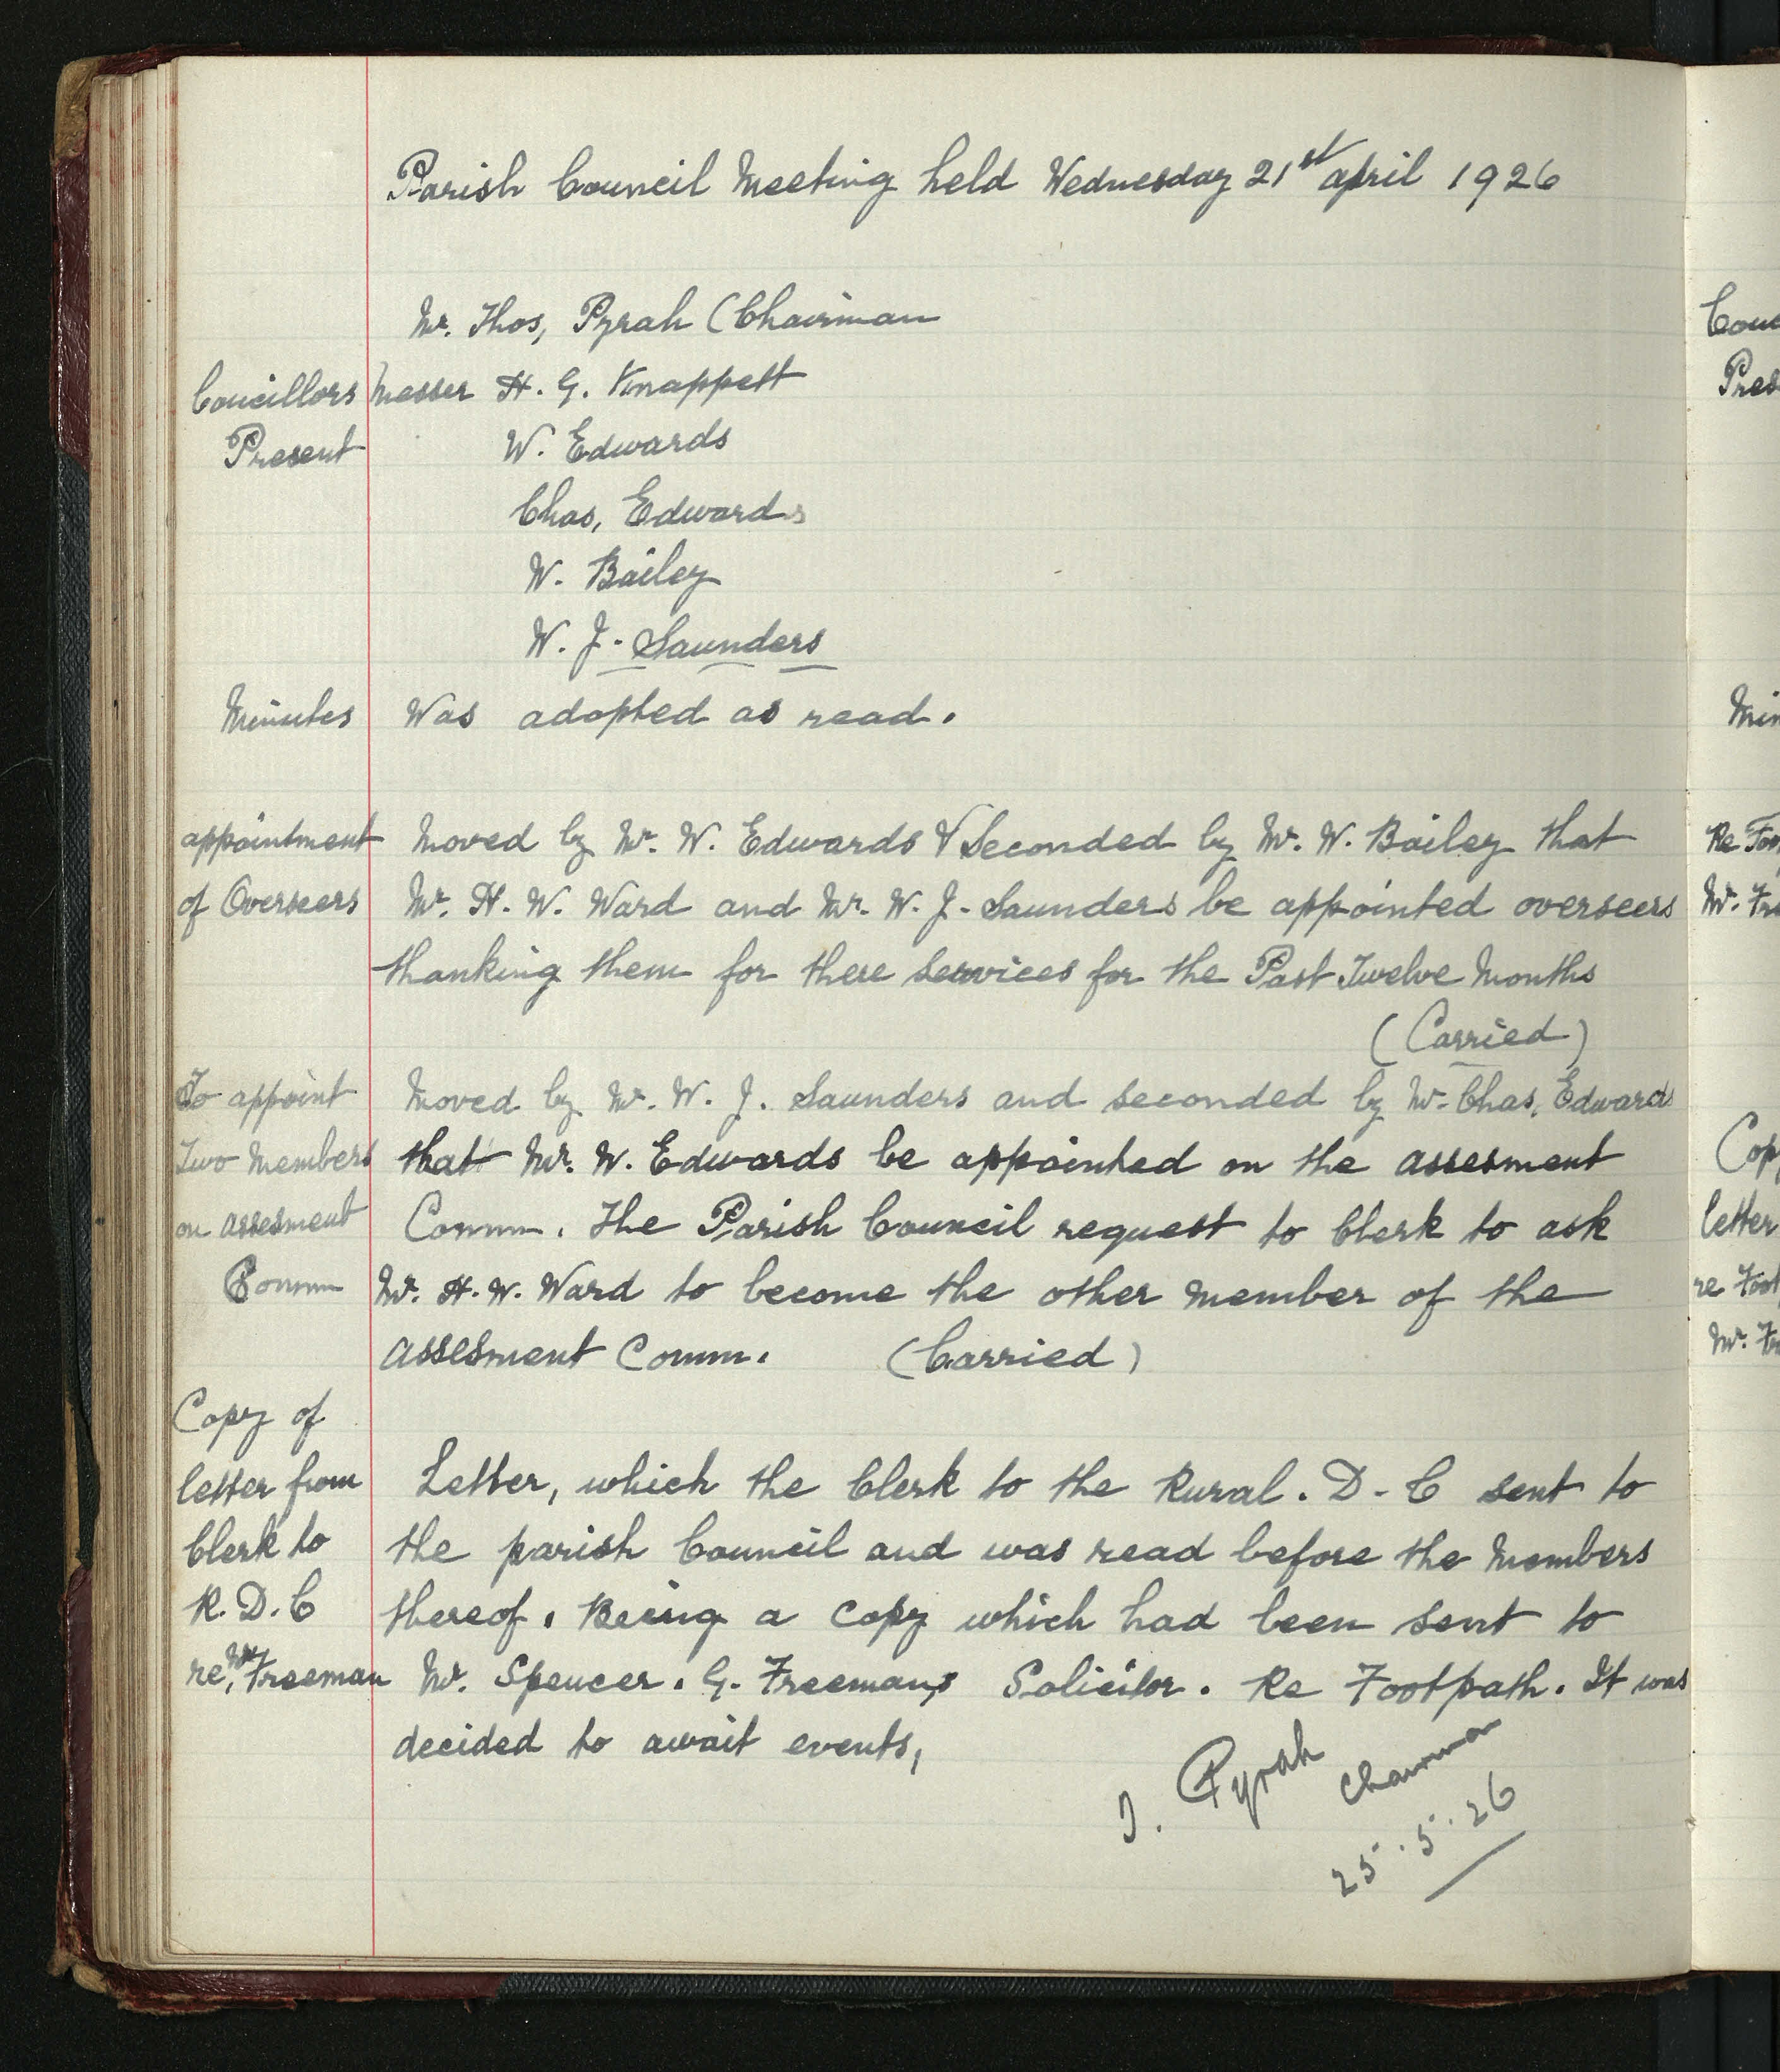 Parish Council Meeting held Wednesday 21st april 1926
Mr. Thos, Pyrah (Chairman
Coucillors Messer H. G. Knappett
Present W. Edwards
Chas, Edwards
W. Bailey
W. J. Saunders
Minutes Was adopted as read.
appointment Moved by Mr. W. Edwards & Seconded by Mr. W. Bailey that
of Overseers Mr. H. W. Ward and Mr. W. J. Saunders be appointed overseers
thanking them for there services for the Past Twelve Months
(Carried)
To appoint Moved by Mr. W. J. Saunders and seconded by Mr. Chas, Edwards
Two Members that Mr. W. Edwards be appointed on the assesment
on assesment Comm. The Parish Council request to Clerk to ask
Comm Mr. H. W. Ward to become the other member of the
assesment Comm. (Carried)
Copy of
letter from Letter, which the Clerk to the Rural. D. C sent to
Clerk to the parish Council and was read before the Members
R. D. C thereof. Being a copy which had been sent to
re, Mr Freeman Mr. Spencer. G. Freemans Solicitor. Re Footpath. It was
decided to await events,
T. Pyrah
Chairman
25.5.26
Re
Mr.
letter
re
Mr.